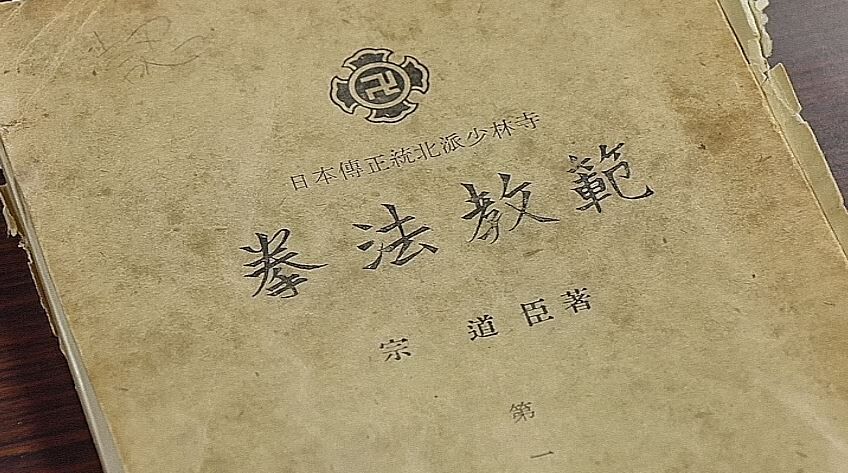 卍
日本傳正統北派少林寺
拳法教範
宗 道臣著
第一